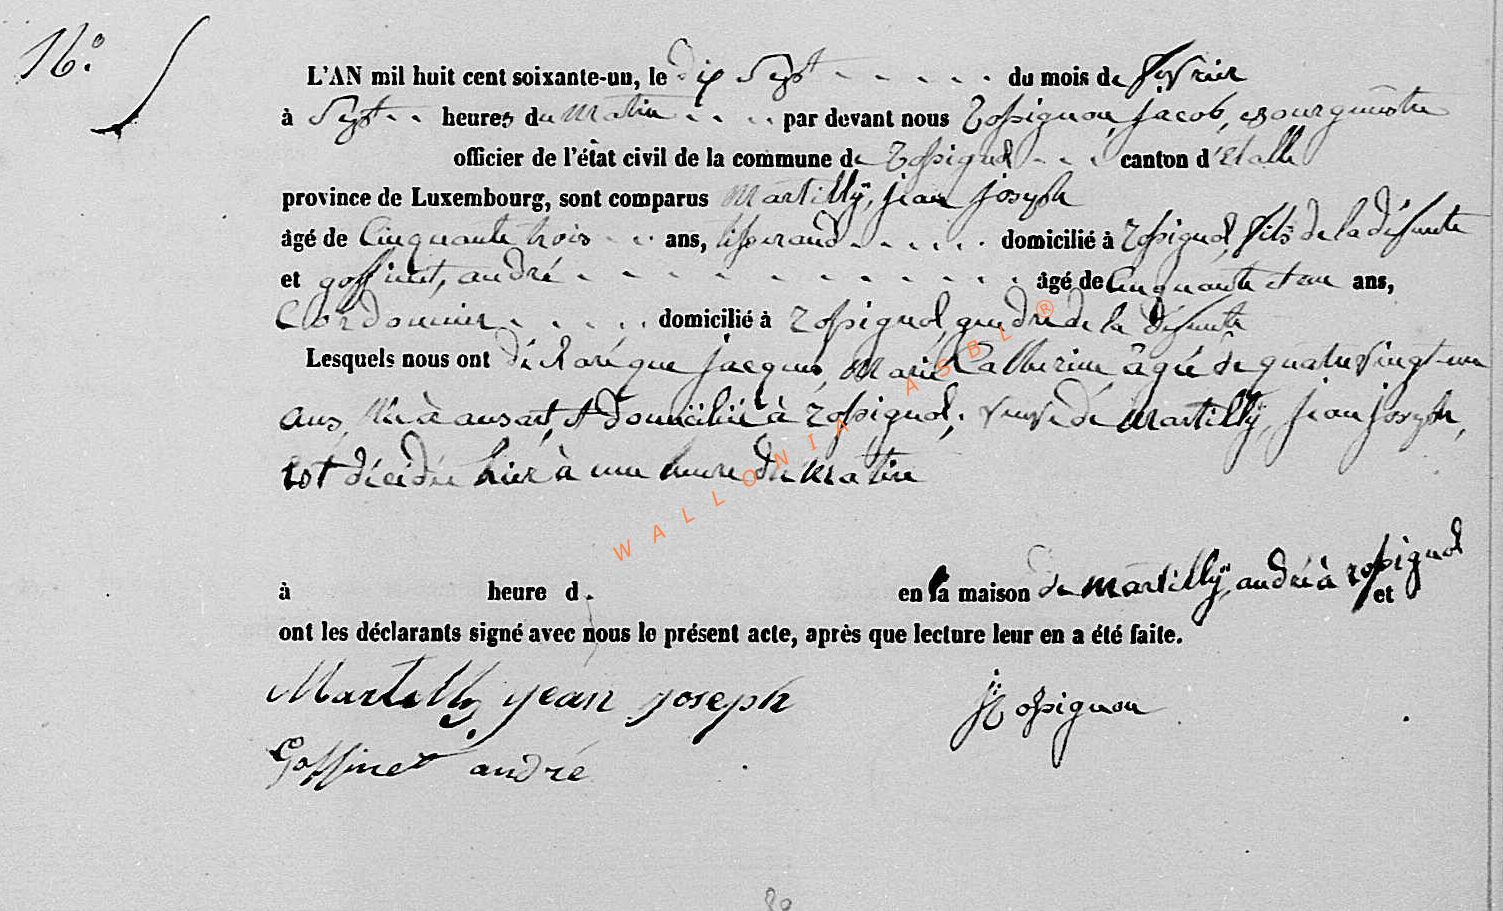 N° 16.
L'AN mil huit cent soixante-un, le dix Sept - - - - - du mois de février
à Sept - - heures du matin - - - - par devant nous Rossignon, jacob, Bourguemestre
officier de l'état civil de la commune de Rossignol - - - canton d'Etalle
province de Luxembourg, sont comparus Martilly, jean joseph
âgé de Cinquante trois - - - ans, tisserand - - - - - - domicilié à Rossignol, fils de la défunte
et goffinet, andré - - - - - - - - - - - - âgé de Cinquante et un ans,
Cordonnier - - - - - domicilié à Rossignol, gendre de la défunte
Lesquels nous ont déclaré que jacques, Marie Catherine âgée de quatre vingt-un
ans, Née à ansart, et domiciliée à Rossignol, veuve de Martilly, jean joseph,
Est décédée hier à une heure du Matin
à heure d en la maison de martilly, andré à rossignol et
ont les déclarants signé avec nous le présent acte, après que lecture leur en a été faite.
Martilly jean joseph
JRossignon
Goffinet andré
WALLONIA ASBL ®